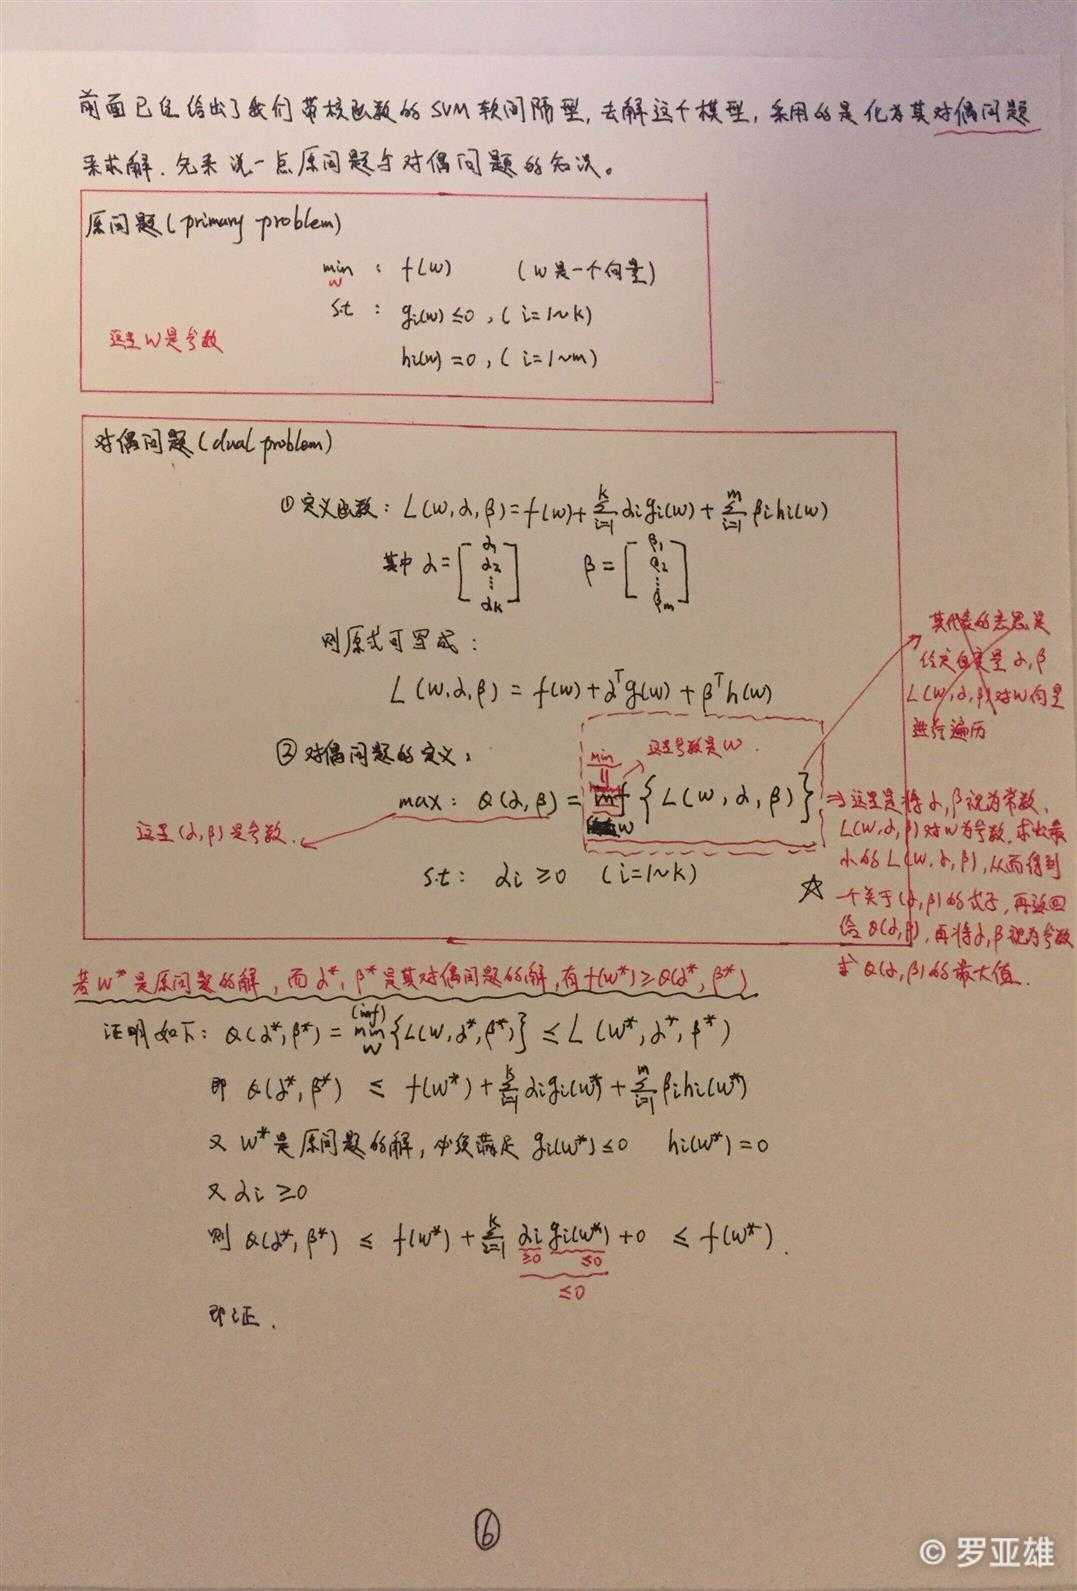 前面已经给出了我们带核函数的SVM软间隔型,去解这个模型,采用的是化为其对偶问题
来求解.先来说一点原问题与对偶问题的知识。
原问题(primary problem)
min w : f(w) (w是一个向量)
s.t : gi(w)≤0,(i=1~k)
这里w是参数
hi(w)=0,(i=1~m)
对偶问题(dual problem)
①定义函数: L(w,α,β)=f(w)+∑_{i=1}^{k} αigi(w)+∑_{i=1}^{m} βihi(w)
其中 α=[α1 α2 ⋮ αk] β=[β1 β2 ⋮ βm]
则原式可写成:
L(w,α,β) = f(w)+α^T g(w) + β^T h(w)
其代表的意思是
给定自变量α,β
L(w,α,β)对w向量
进行遍历
②对偶问题的定义:
min 这里参数是w.
max: Q(α,β)=inf w {L(w,α,β)}
这里(α,β)是参数.
s.t: αi≥0 (i=1~k)
⇒这里是将α,β视为常数,
L(w,α,β)对w为参数,求出最
小的L(w,α,β),从而得到
☆ 一个关于(α,β)的式子,再返回
给Q(α,β),再将α,β视为参数
求Q(α,β)的最大值.
若w*是原问题的解,而α*,β*是其对偶问题的解,有f(w*)≥Q(α*,β*)
证明如下: Q(α*,β*)=min(inf) w {L(w,α*,β*)} ≤ L(w*,α*,β*)
即 Q(α*,β*) ≤ f(w*)+∑_{i=1}^{k} αigi(w*)+∑_{i=1}^{m} βihi(w*)
又 w*是原问题的解,必须满足 gi(w*)≤0 hi(w*)=0
又 αi≥0
则 Q(α*,β*) ≤ f(w*)+∑_{i=1}^{k} αi gi(w*)+0 ≤ f(w*).
≥0 ≤0
≤0
即证.
⑥
© 罗亚雄